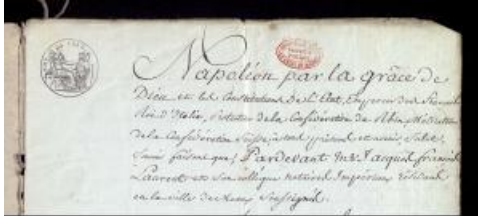 Napoléon par la grâce de
Dieu et les Constitutions de l'Etat, Empereur des Français
Roi d'Italie, Protecteur de la Confédération du Rhin, Médiateur
de la Confédération Suisse, à tous présens et à venir, Salut,
Savoir faisons que Pardevant
Laurent et son collègue notaires Impériaux résidant
en la ville de Soussignés